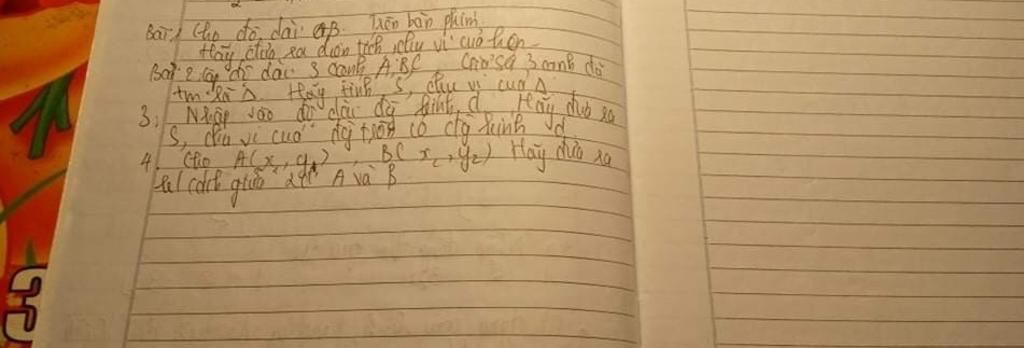 Bài 1 Cho độ dài AB. Trên bàn phím.
Hãy đưa ra diện tích, chu vi của hcn
Bài 2. độ dài 3 cạnh A, B, C 3 cạnh đó
tm là Δ Hãy tính S, chu vi của Δ
3. Nhập vào độ dài đg kính d. Hãy đưa ra
S, chu vi của đg tròn có đg kính d
4. Cho A(x, y₁), B(x₂, y₂) Hãy đưa ra
k/cách giữa 2 A và B
3